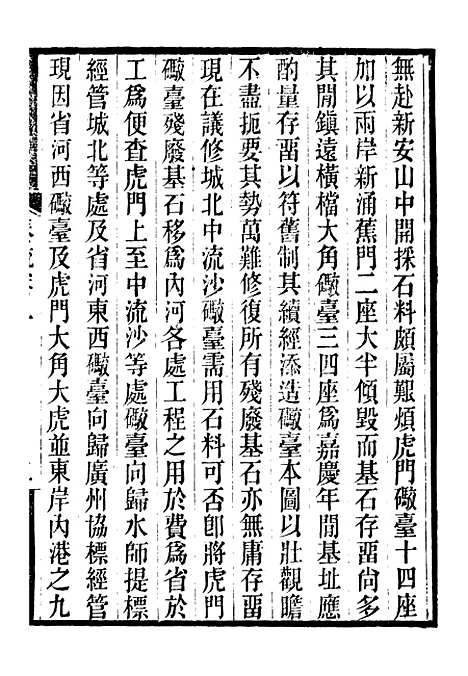 無赴新安山中開採石料頗屬艱煩虎門礮臺十四座
加以兩岸新涌蕉門二座大半傾毀而基石存畱尙多
其閒鎭遠橫檔大角礮臺三四座爲嘉慶年閒基址應
酌量存畱以符舊制其續經添造礮臺本圖以壯觀瞻
不盡扼要其勢萬難修復所有殘廢基石亦無庸存畱
現在議修城北中流沙礮臺需用石料可否卽將虎門
礮臺殘廢基石移爲內河各處工程之用於費爲省於
工爲便查虎門上至中流沙等處礮臺向歸水師提標
經管城北等處及省河東西礮臺向歸廣州協標經管
現因省河西礮臺及虎門大角大虎並東岸內港之九